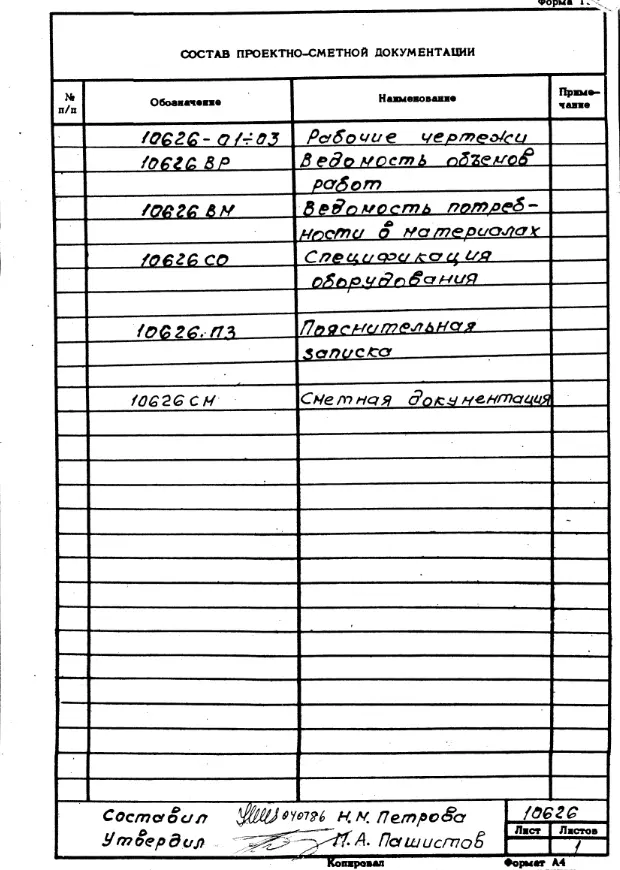 Форма 1.
СОСТАВ ПРОЕКТНО-СМЕТНОЙ ДОКУМЕНТАЦИИ
№ п/п Обозначение Наименование Приме-
чание
10626-01÷03 Рабочие чертежи
10626 ВР Ведомость объемов
работ
10626 ВМ Ведомость потреб-
ности в материалах
10626 СО Спецификация
оборудования
10626. ПЗ Пояснительная
записка
10626 СМ Сметная документация
Составил 040786 Н.М. Петрова 10626
Утвердил М.А. Пашистов Лист Листов
1
Копировал Формат А4